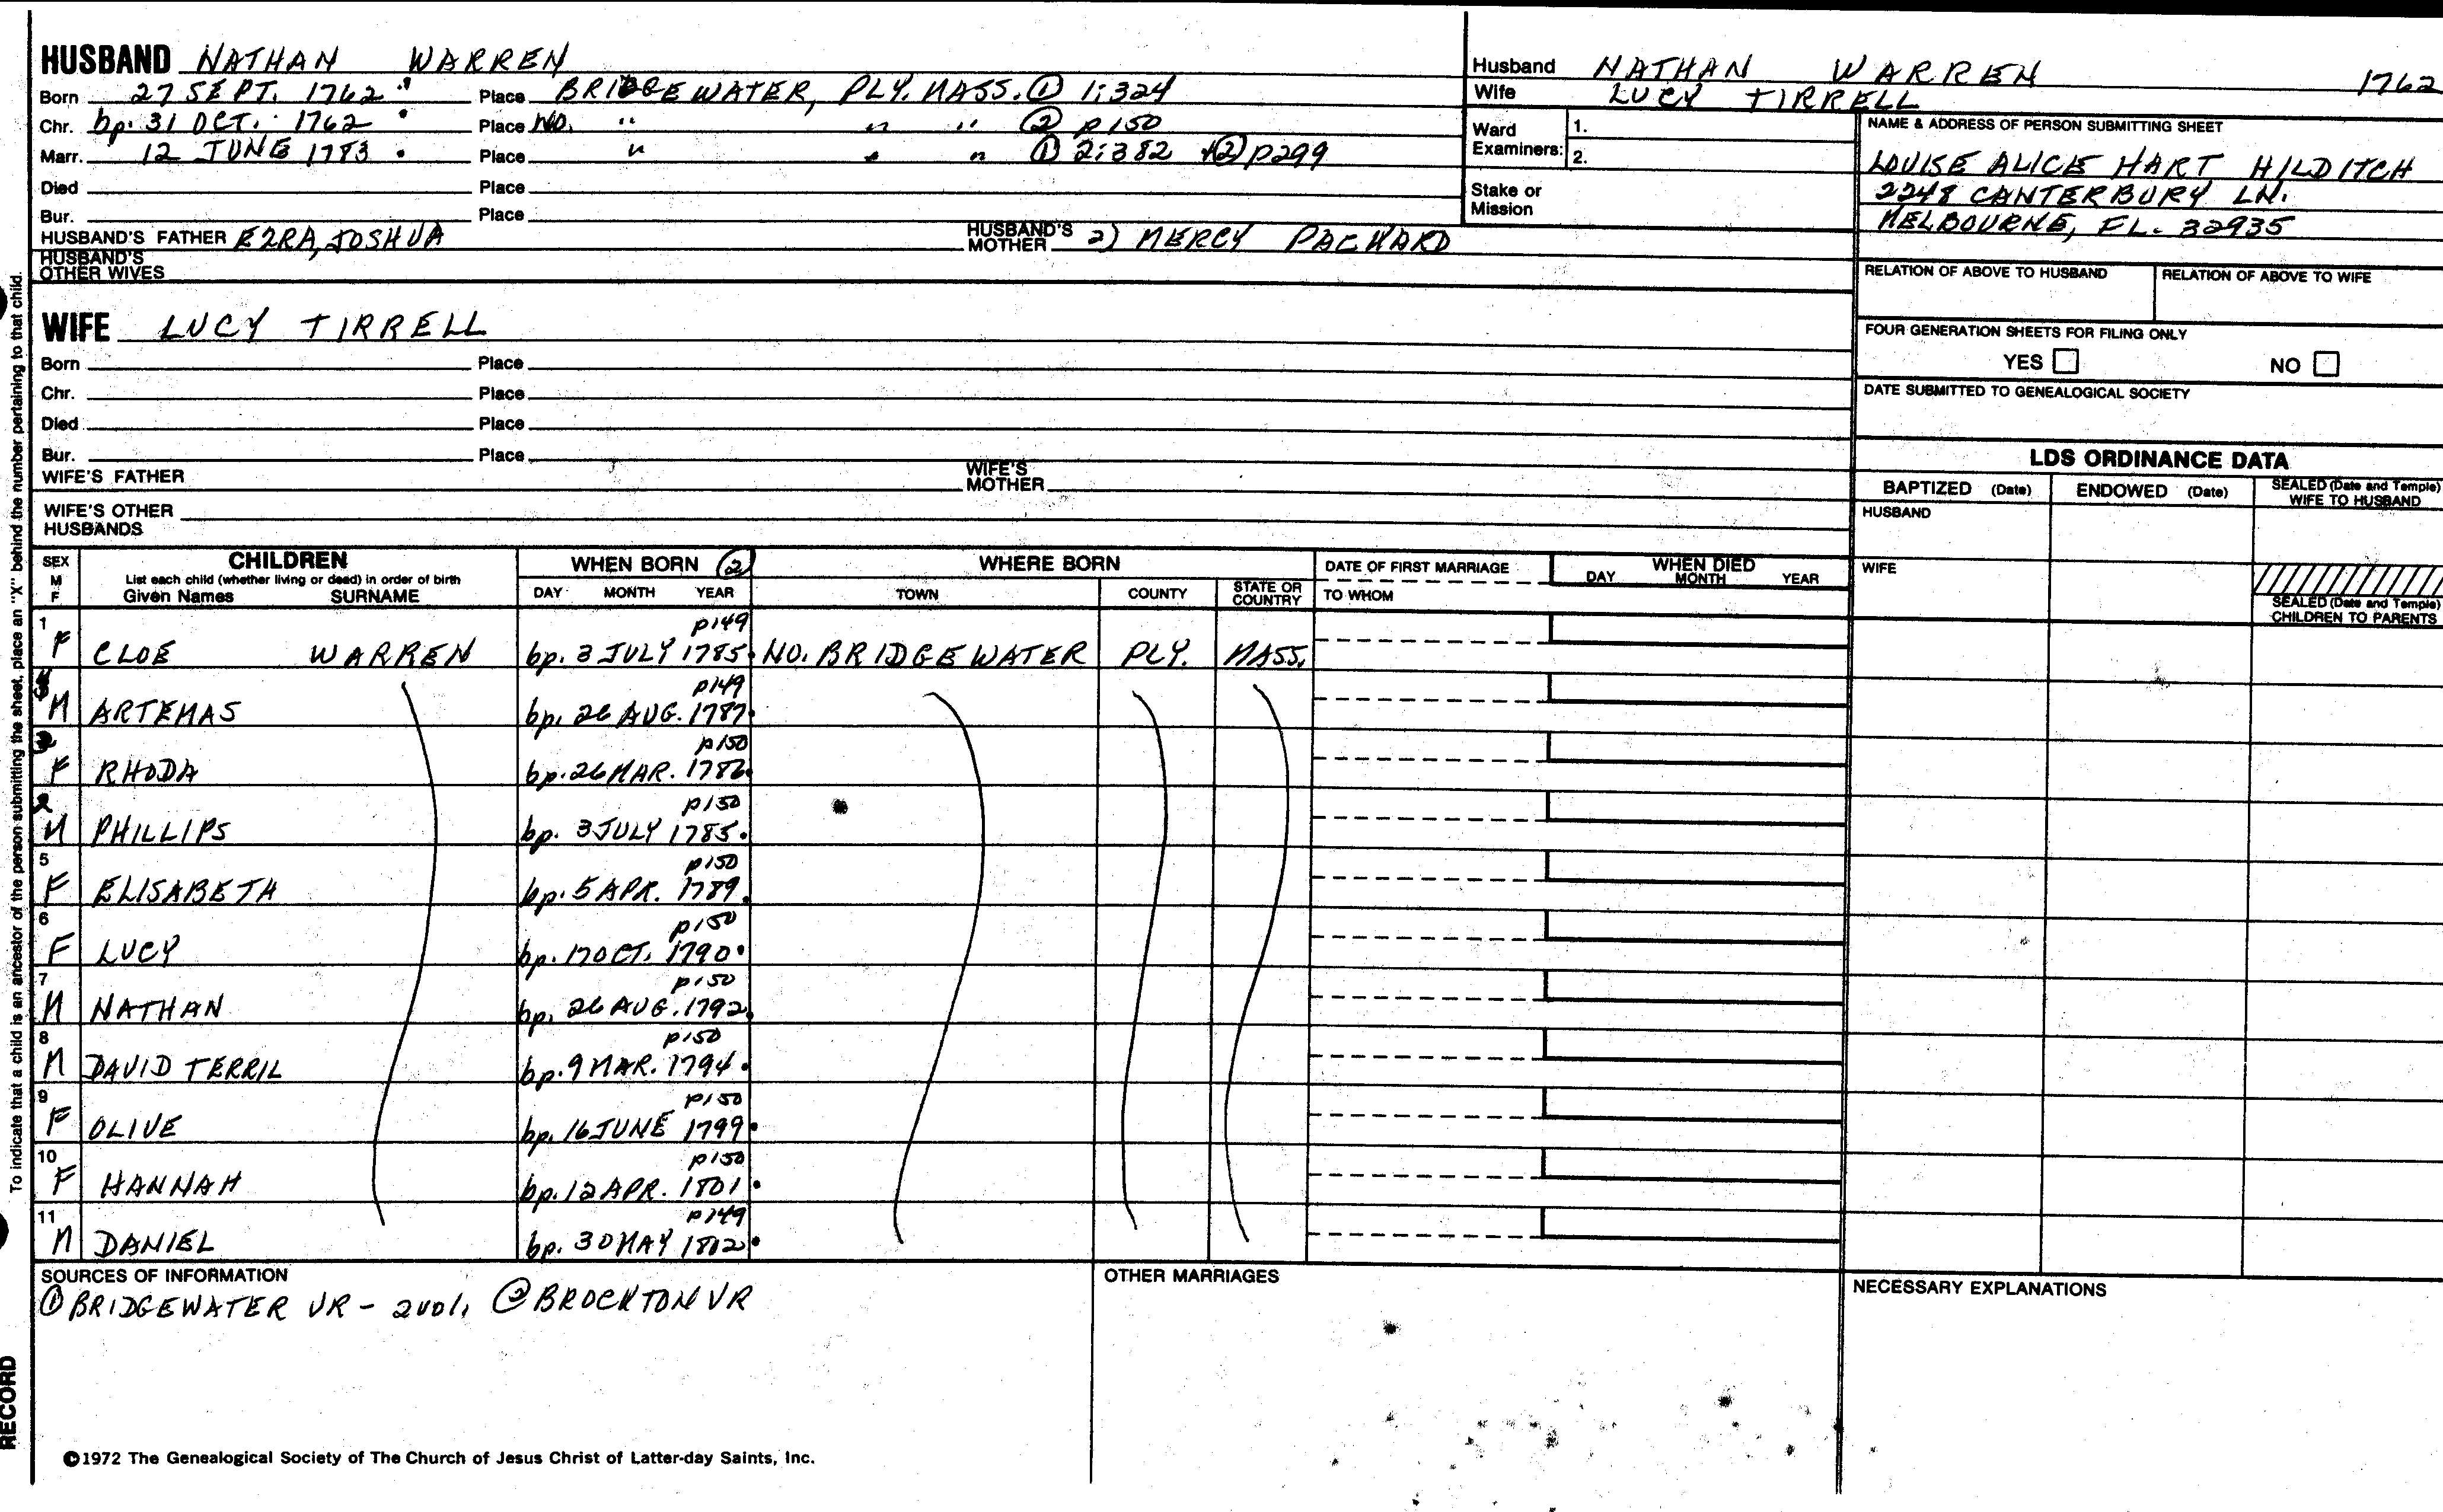 HUSBAND NATHAN WARREN
Born 27 SEPT. 1762 Place BRIDGEWATER, PLY. MASS. ① 1:324
Chr. bp. 31 OCT. 1762 Place NO. " " " ② p150
Marr. 12 JUNE 1783 Place " " " ① 2:382 ② p299
Died Place
Bur. Place
HUSBAND'S FATHER EZRA, JOSHUA HUSBAND'S MOTHER 2) MERCY PACKARD
HUSBAND'S OTHER WIVES
Husband NATHAN WARREN 1762
Wife LUCY TIRRELL
Ward Examiners: 1.
2.
Stake or Mission
NAME & ADDRESS OF PERSON SUBMITTING SHEET
LOUISE ALICE HART HILDITCH
2248 CANTERBURY LN.
MELBOURNE, FL. 32935
RELATION OF ABOVE TO HUSBAND RELATION OF ABOVE TO WIFE
FOUR GENERATION SHEETS FOR FILING ONLY
YES NO
DATE SUBMITTED TO GENEALOGICAL SOCIETY
WIFE LUCY TIRRELL
Born Place
Chr. Place
Died Place
Bur. Place
WIFE'S FATHER WIFE'S MOTHER
WIFE'S OTHER HUSBANDS
LDS ORDINANCE DATA
BAPTIZED (Date) ENDOWED (Date) SEALED (Date and Temple) WIFE TO HUSBAND
HUSBAND
WIFE
SEALED (Date and Temple) CHILDREN TO PARENTS
SEX M F CHILDREN WHEN BORN ② WHERE BORN DATE OF FIRST MARRIAGE WHEN DIED
List each child (whether living or dead) in order of birth
Given Names SURNAME DAY MONTH YEAR TOWN COUNTY STATE OR COUNTRY TO WHOM DAY MONTH YEAR
1 p149
F CLOE WARREN bp. 3 JULY 1785 NO. BRIDGEWATER PLY. MASS.
p149
M ARTEMAS bp. 26 AUG. 1787
3 p150
F RHODA bp. 26 MAR. 1786
2 p150
M PHILLIPS bp. 3 JULY 1785.
5 p150
F ELISABETH bp. 5 APR. 1789.
6 p150
F LUCY bp. 17 OCT. 1790.
7 p150
M NATHAN bp. 26 AUG. 1792.
8 p150
M DAVID TERRIL bp. 9 MAR. 1794.
9 p150
F OLIVE bp. 16 JUNE 1799.
10 p150
F HANNAH bp. 12 APR. 1801.
11 p149
M DANIEL bp. 30 MAY 1802.
SOURCES OF INFORMATION OTHER MARRIAGES NECESSARY EXPLANATIONS
① BRIDGEWATER VR - 2 vol. ② BROCKTON VR
©1972 The Genealogical Society of The Church of Jesus Christ of Latter-day Saints, Inc.
To indicate that a child is an ancestor of the person submitting the sheet, place an "X" behind the number pertaining to that child.
RECORD